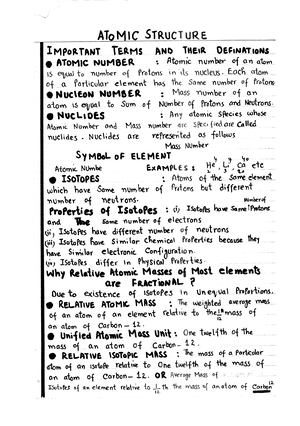 ATOMIC STRUCTURE
IMPORTANT TERMS AND THEIR DEFINATIONS
● ATOMIC NUMBER : Atomic number of an atom
is equal to number of Protons in its nucleus. Each atom
of a Particular element has the Same number of Protons
● NUCLEON NUMBER : Mass number of an
atom is equal to Sum of Number of Protons and Neutrons.
● NUCLIDES : Any atomic Species whose
Atomic Number and Mass number are specified are Called
nuclides. Nuclides are represented as follows
Mass Number
SYMBOL OF ELEMENT
Atomic Numbe EXAMPLES : He, Li, Ca etc
● ISOTOPES : Atoms of the Same element
which have Same number of Protons but different
number of neutrons.
Properties of Isotopes : (i) Isotopes have Same number of Protons
and The Same number of electrons
(ii) Isotopes have different number of neutrons
(iii) Isotopes have Similar Chemical Properties because they
have Similar electronic Configuration.
(iv) Isotopes differ in Physical Properties.
Why Relative Atomic Masses of Most elements
are FRACTIONAL ?
Due to existence of isotopes in Unequal Proportions.
● RELATIVE ATOMIC MASS : The weighted average mass
of an atom of an element relative to the mass of
an atom of Carbon-12.
● Unified Atomic Mass Unit : One twelfth of The
mass of an atom of Carbon-12.
● RELATIVE ISOTOPIC MASS : The mass of a Particular
atom of an isotope relative to One twelfth of the mass of
an atom of Carbon-12. OR Average Mass of
Isotopes of an element relative to 1/12 th the mass of an atom of Carbon 12